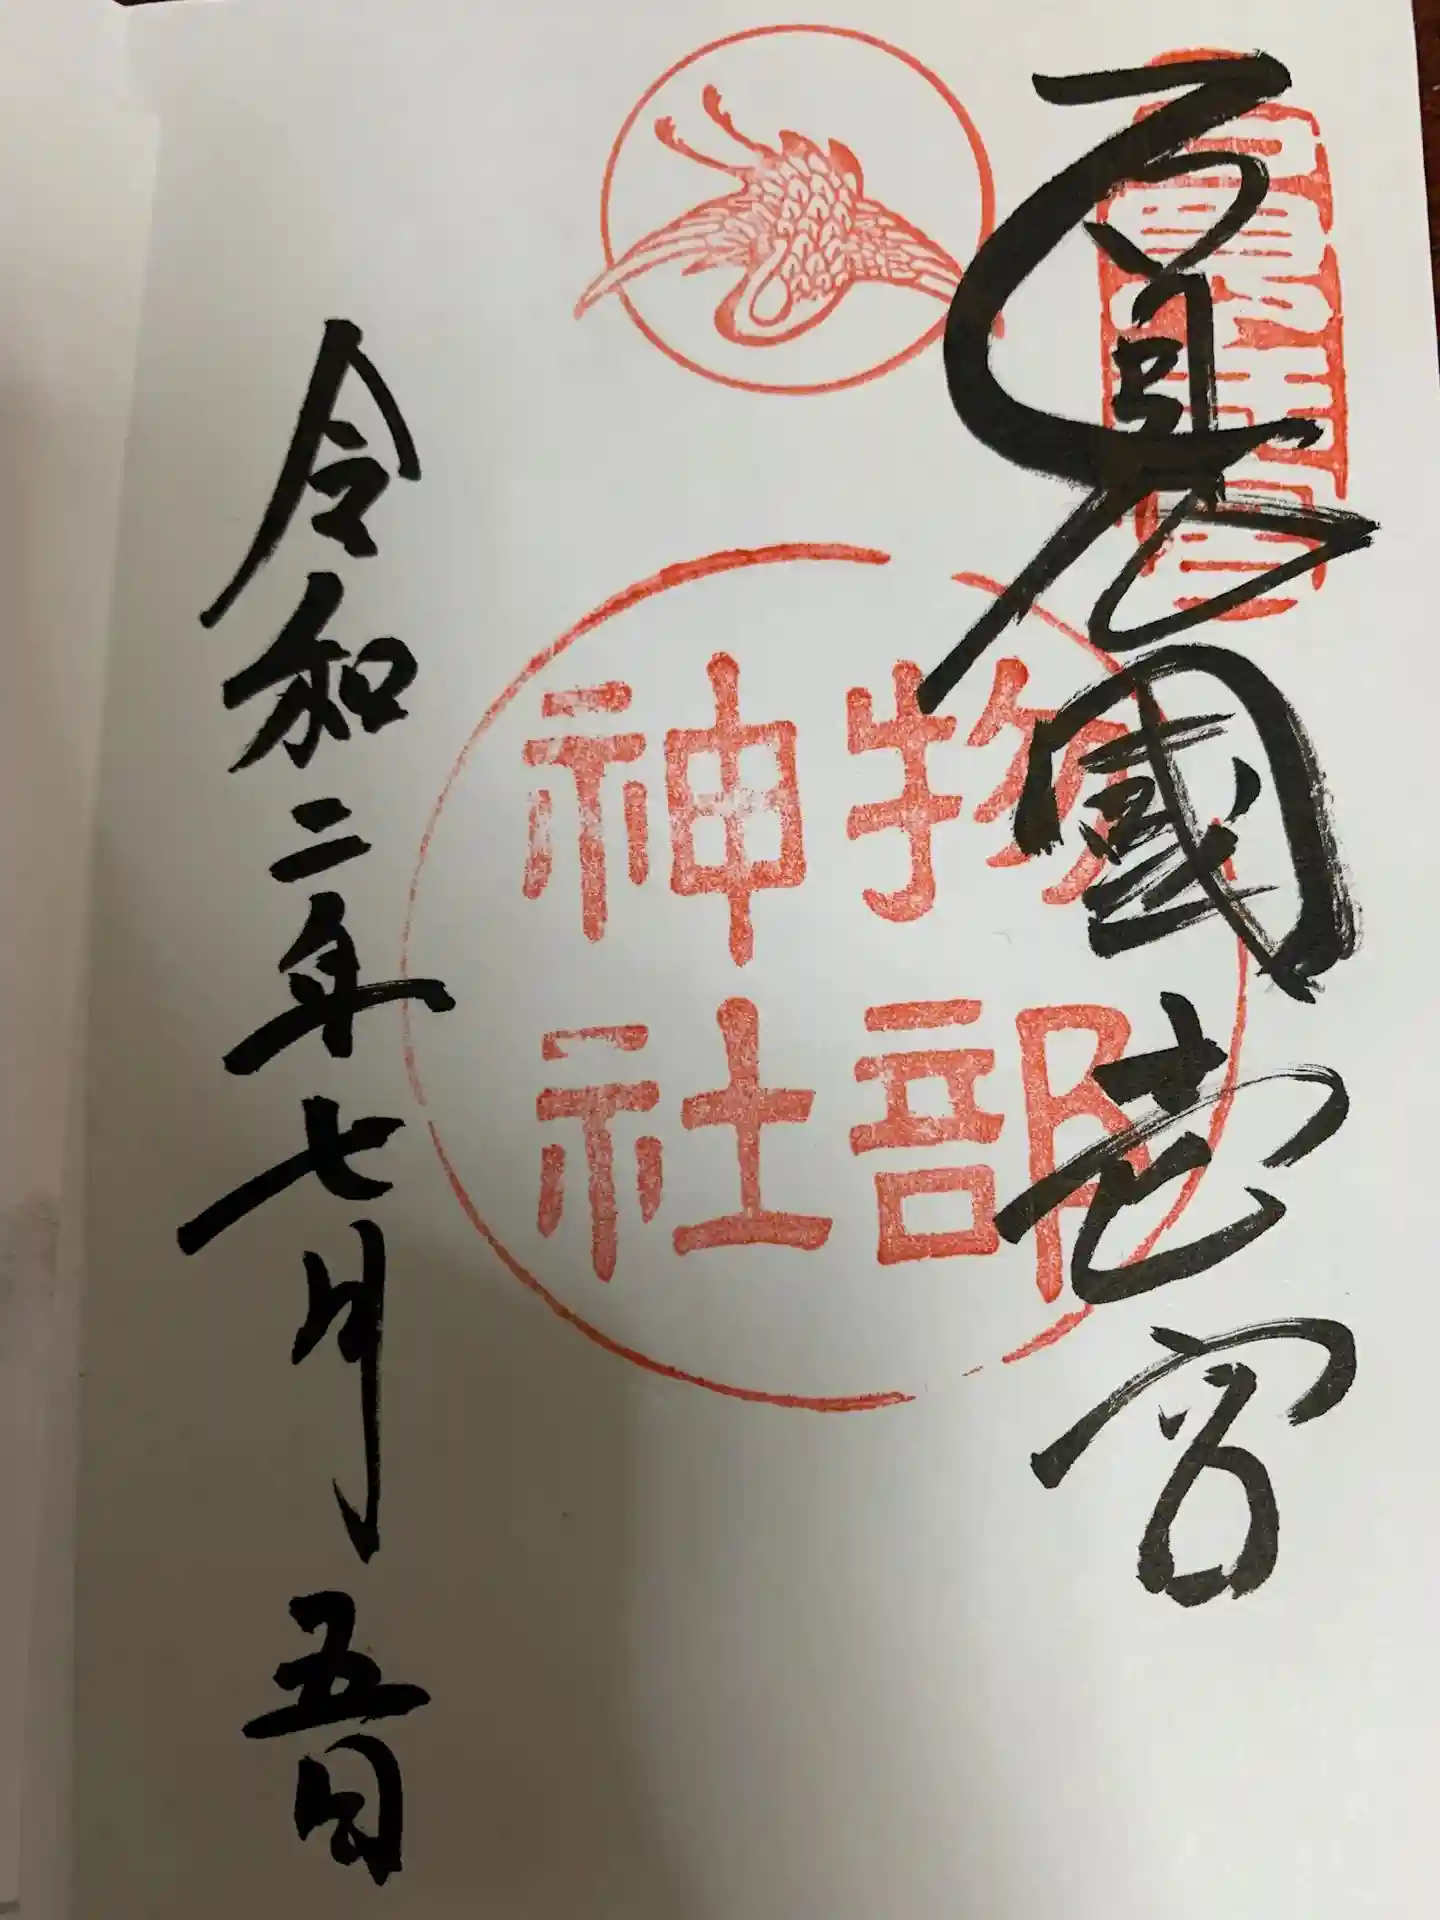 石見國壱宮
物部
神社
令和二年七月五日